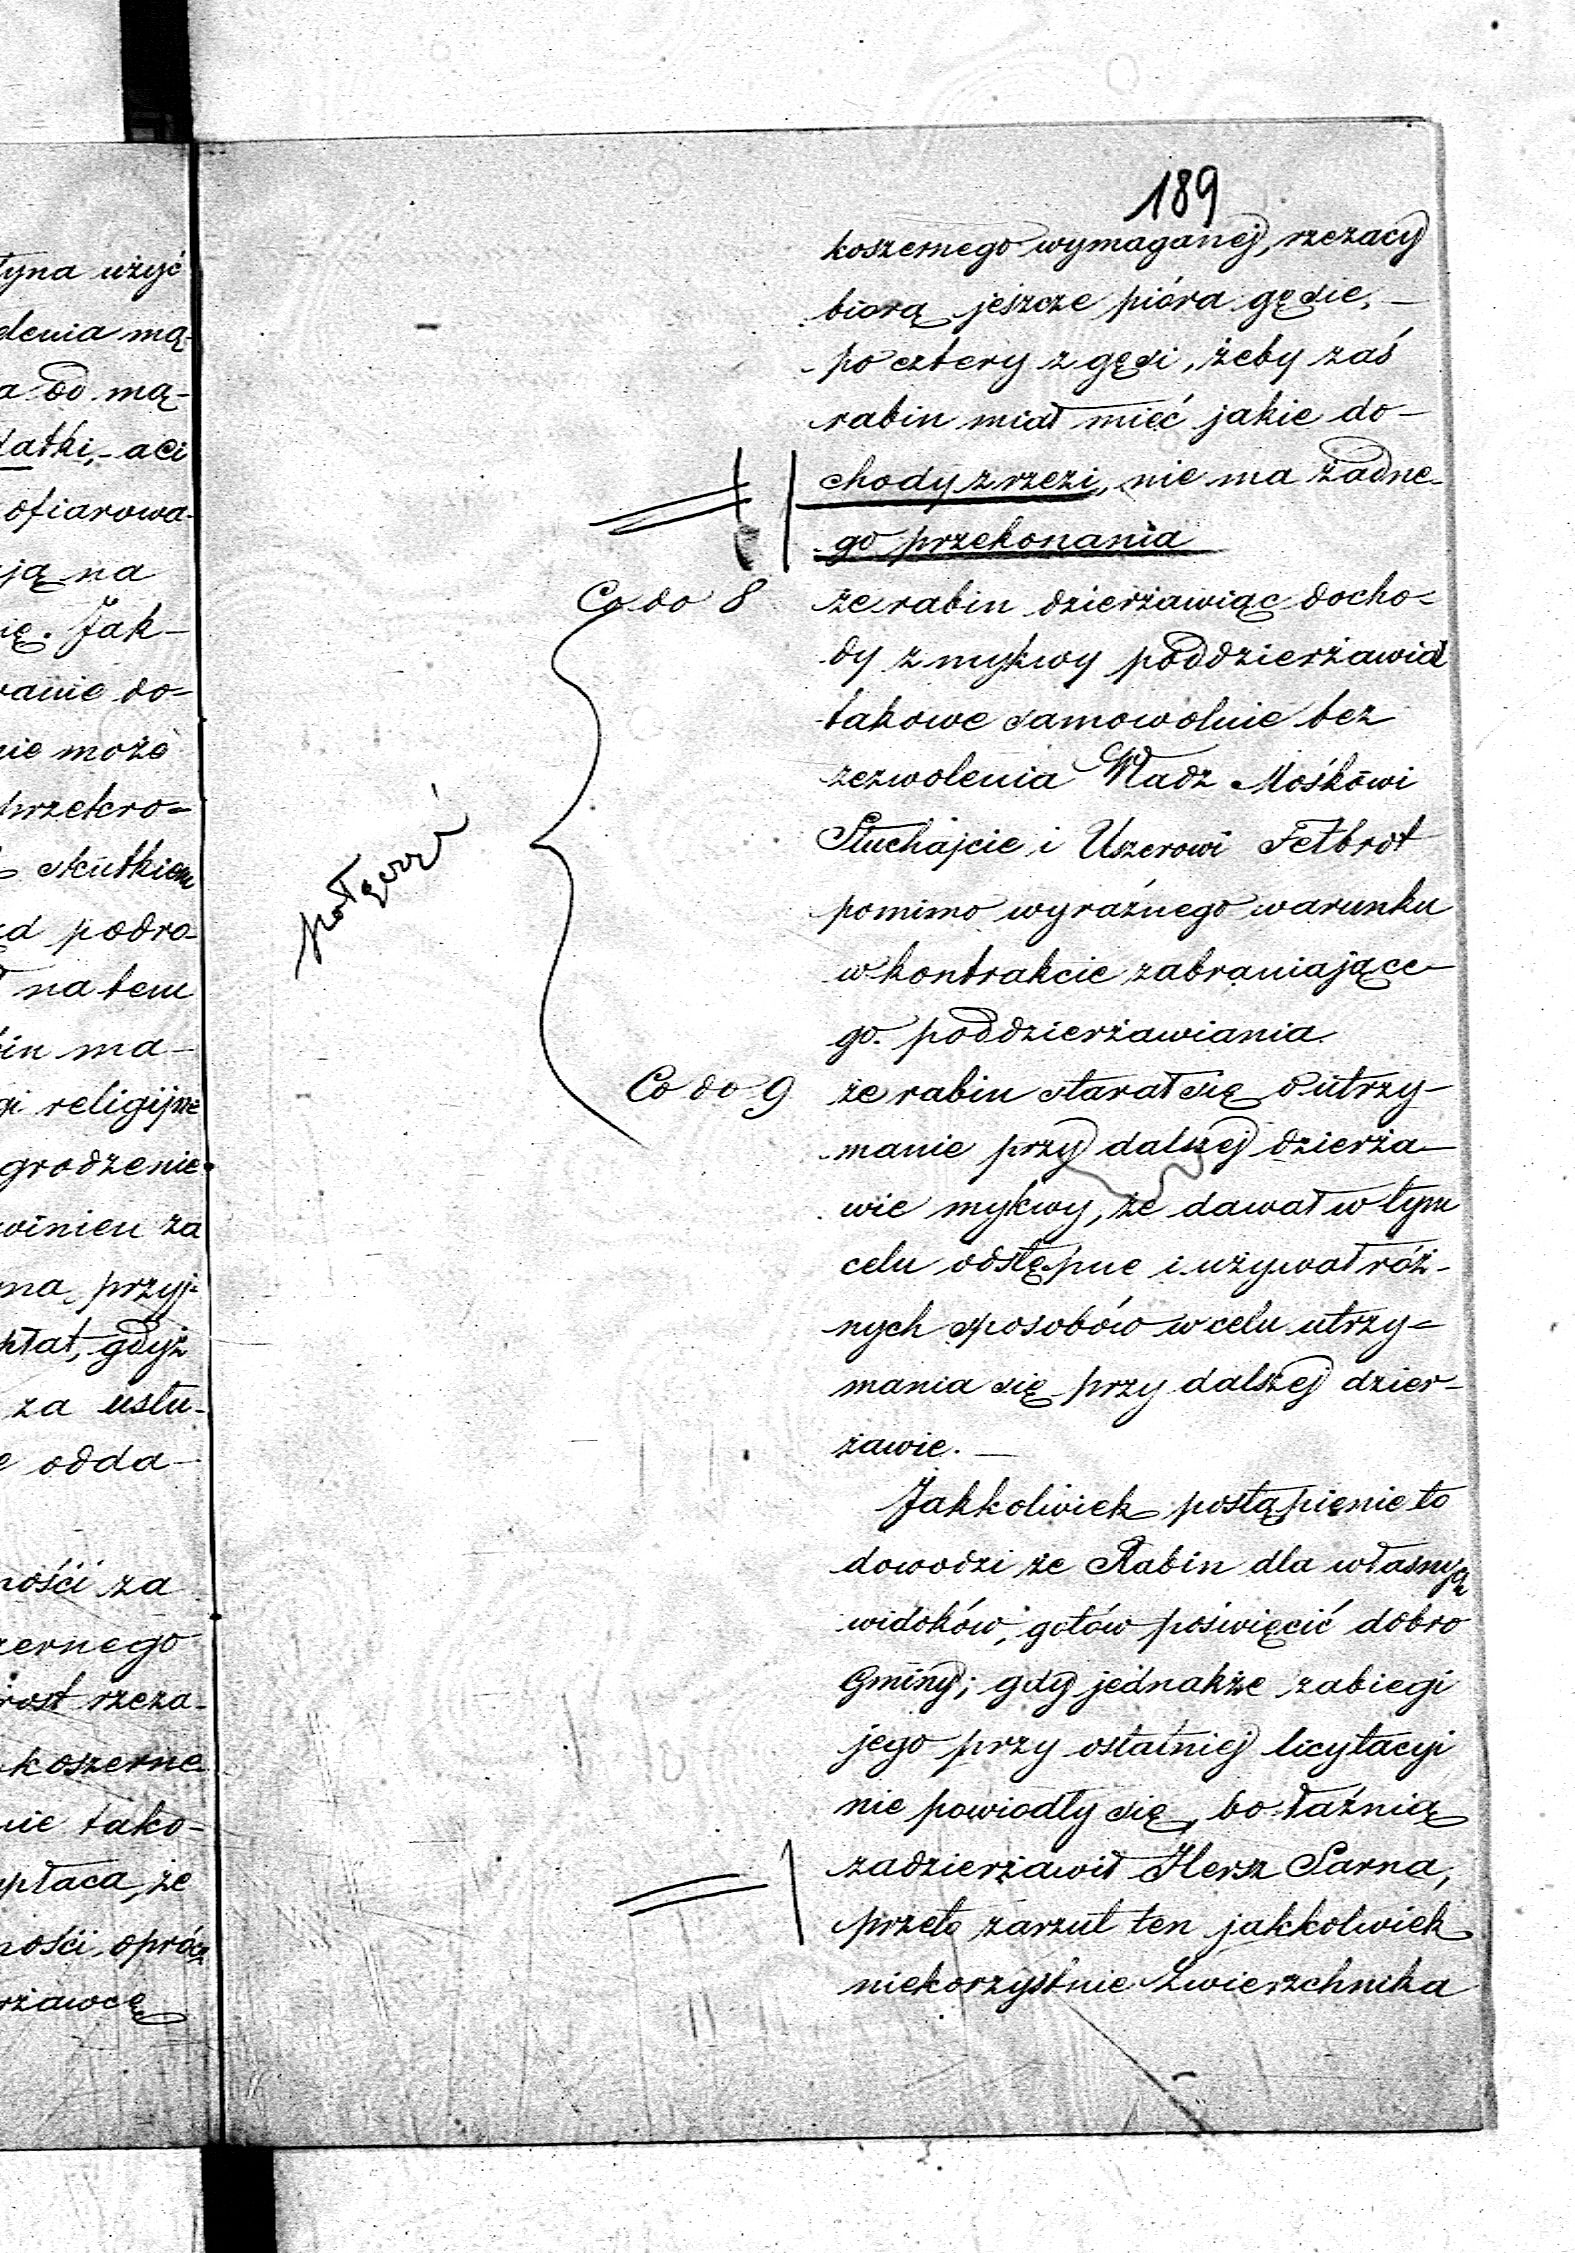 tyna użyć
denia mą-
a od mą-
datki, - a Ci
ofiarowa-
ją na
ię. Jak-
wanie do-
nie może
przekro-
skutkiem
ąd podro-
na tem
in ma-
gi religijne
grodzenie
winien za
ma, przyj-
płat, gdyż
za usłu-
odda-
ności za
zernego
rost rzeza-
koszerne
nie tako-
płaca, że
ności oprócz
rżawcę
189
koszernego wymaganej, rzezacy
biorą jeszcze pióra gęsie, —
po cztery z gęsi, żeby zaś
rabin miał mieć jakie do-
chody z rzezi, nie ma żadne-
go przekonania
Co do 8 że rabin dzierżawiąc docho-
dy z mykwy poddzierżawiał
takowe samowolnie bez
zezwolenia Władz Mośkowi
Słuchajcie i Uszerowi Fetbrot
pomimo wyraźnego warunku
w kontrakcie zabraniające-
go poddzierżawiania
połączyć
Co do 9 że rabin starał się o utrzy-
manie przy dalszej dzierża-
wie mykwy, że dawał w tym
celu odstępne i używał róż-
nych sposobów w celu utrzy-
mania się przy dalszej dzier-
żawie. —
Jakkolwiek postąpienie to
dowodzi że Rabin dla własnych
widoków, gotów poświęcić dobro
Gminy; gdy jednakże zabiegi
jego przy ostatniej licytacyi
nie powiodły się, bo łaźnię
zadzierżawił Hersz Sarna,
przeto zarzut ten jakkolwiek
niekorzystnie Zwierzchnika